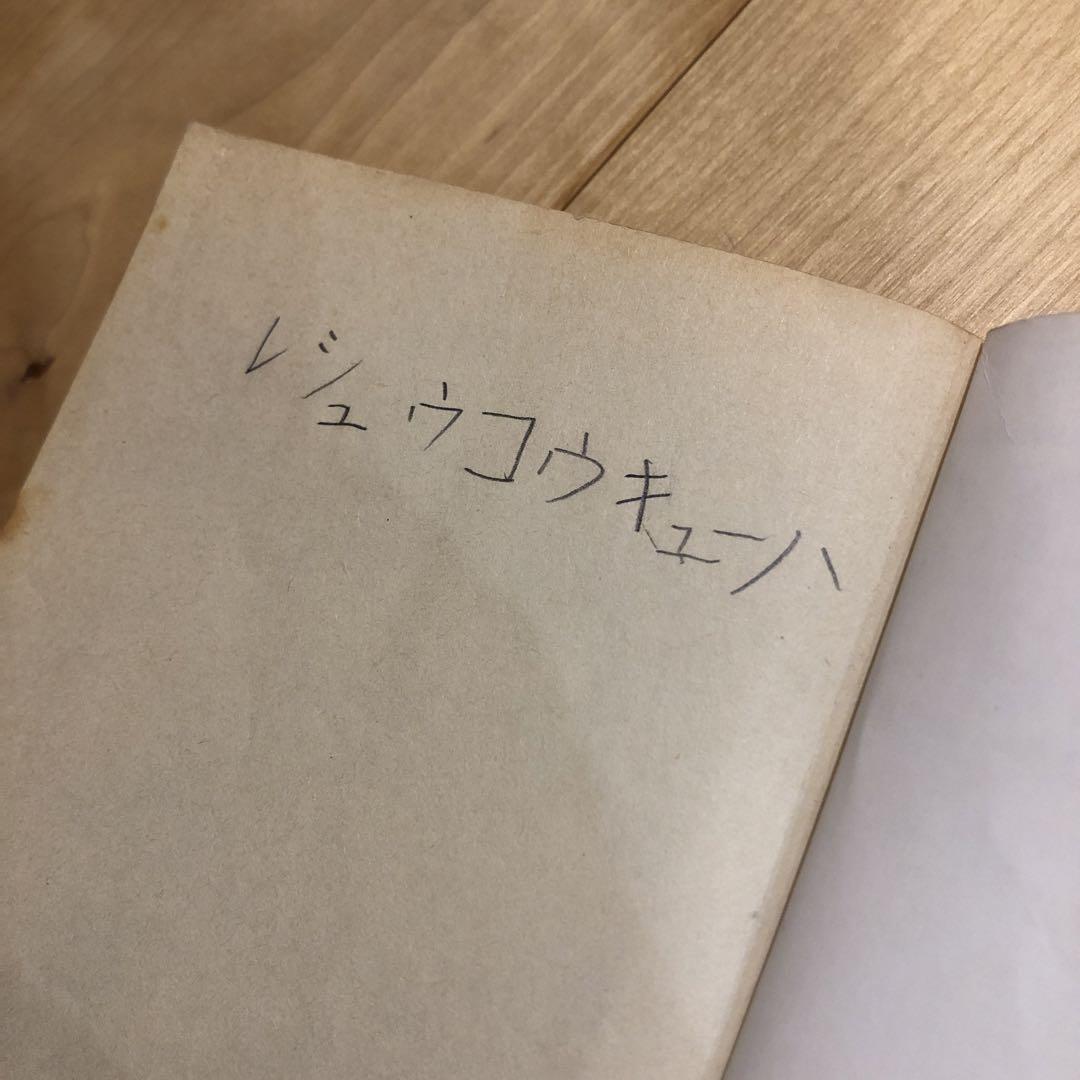 レシュウコウキューハ